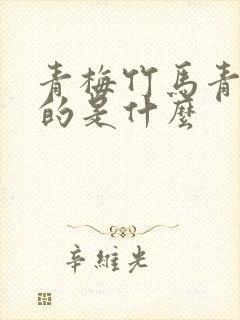 青梅竹马青
的是什麼
辛維光